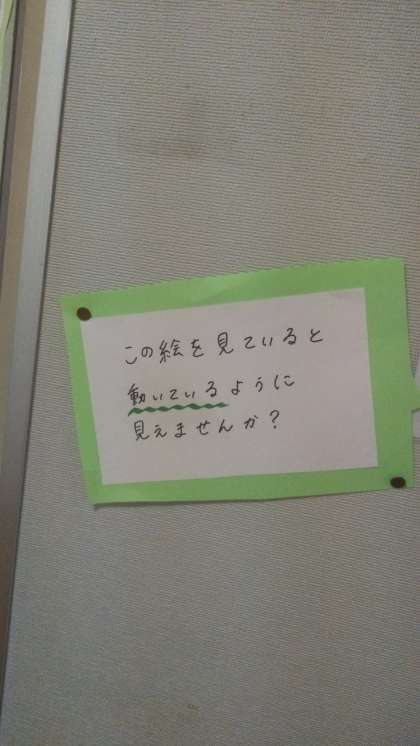 この絵を見ていると
動いているように
見えませんか?